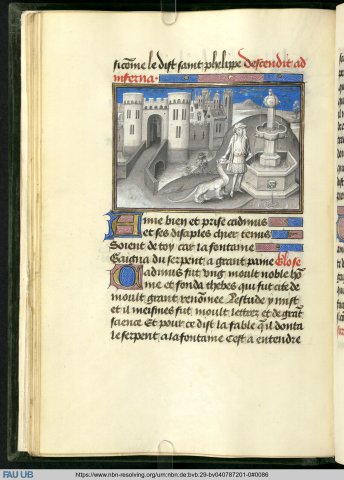 sicõme le dist saint phelippe descendit ad
inferna.
Aime bien et prise cadmus
Et ses disciples chier tenus
Soient de toy car la fontaine
Gaigna du serpent a grant paine Glose
Cadmus fut ung moult noble hõ
me et fonda thebes qui fut cite de
moult grant renõmee lestude y mist
et il meismes fut moult lettrez et de grãt
science Et pour ce dist la fable qͥl donta
le serpent a la fontaine cest a entendre
FAU UB
https://www.nbn-resolving.org/urn:nbn:de:bvb:29-bv040787201-0#0086